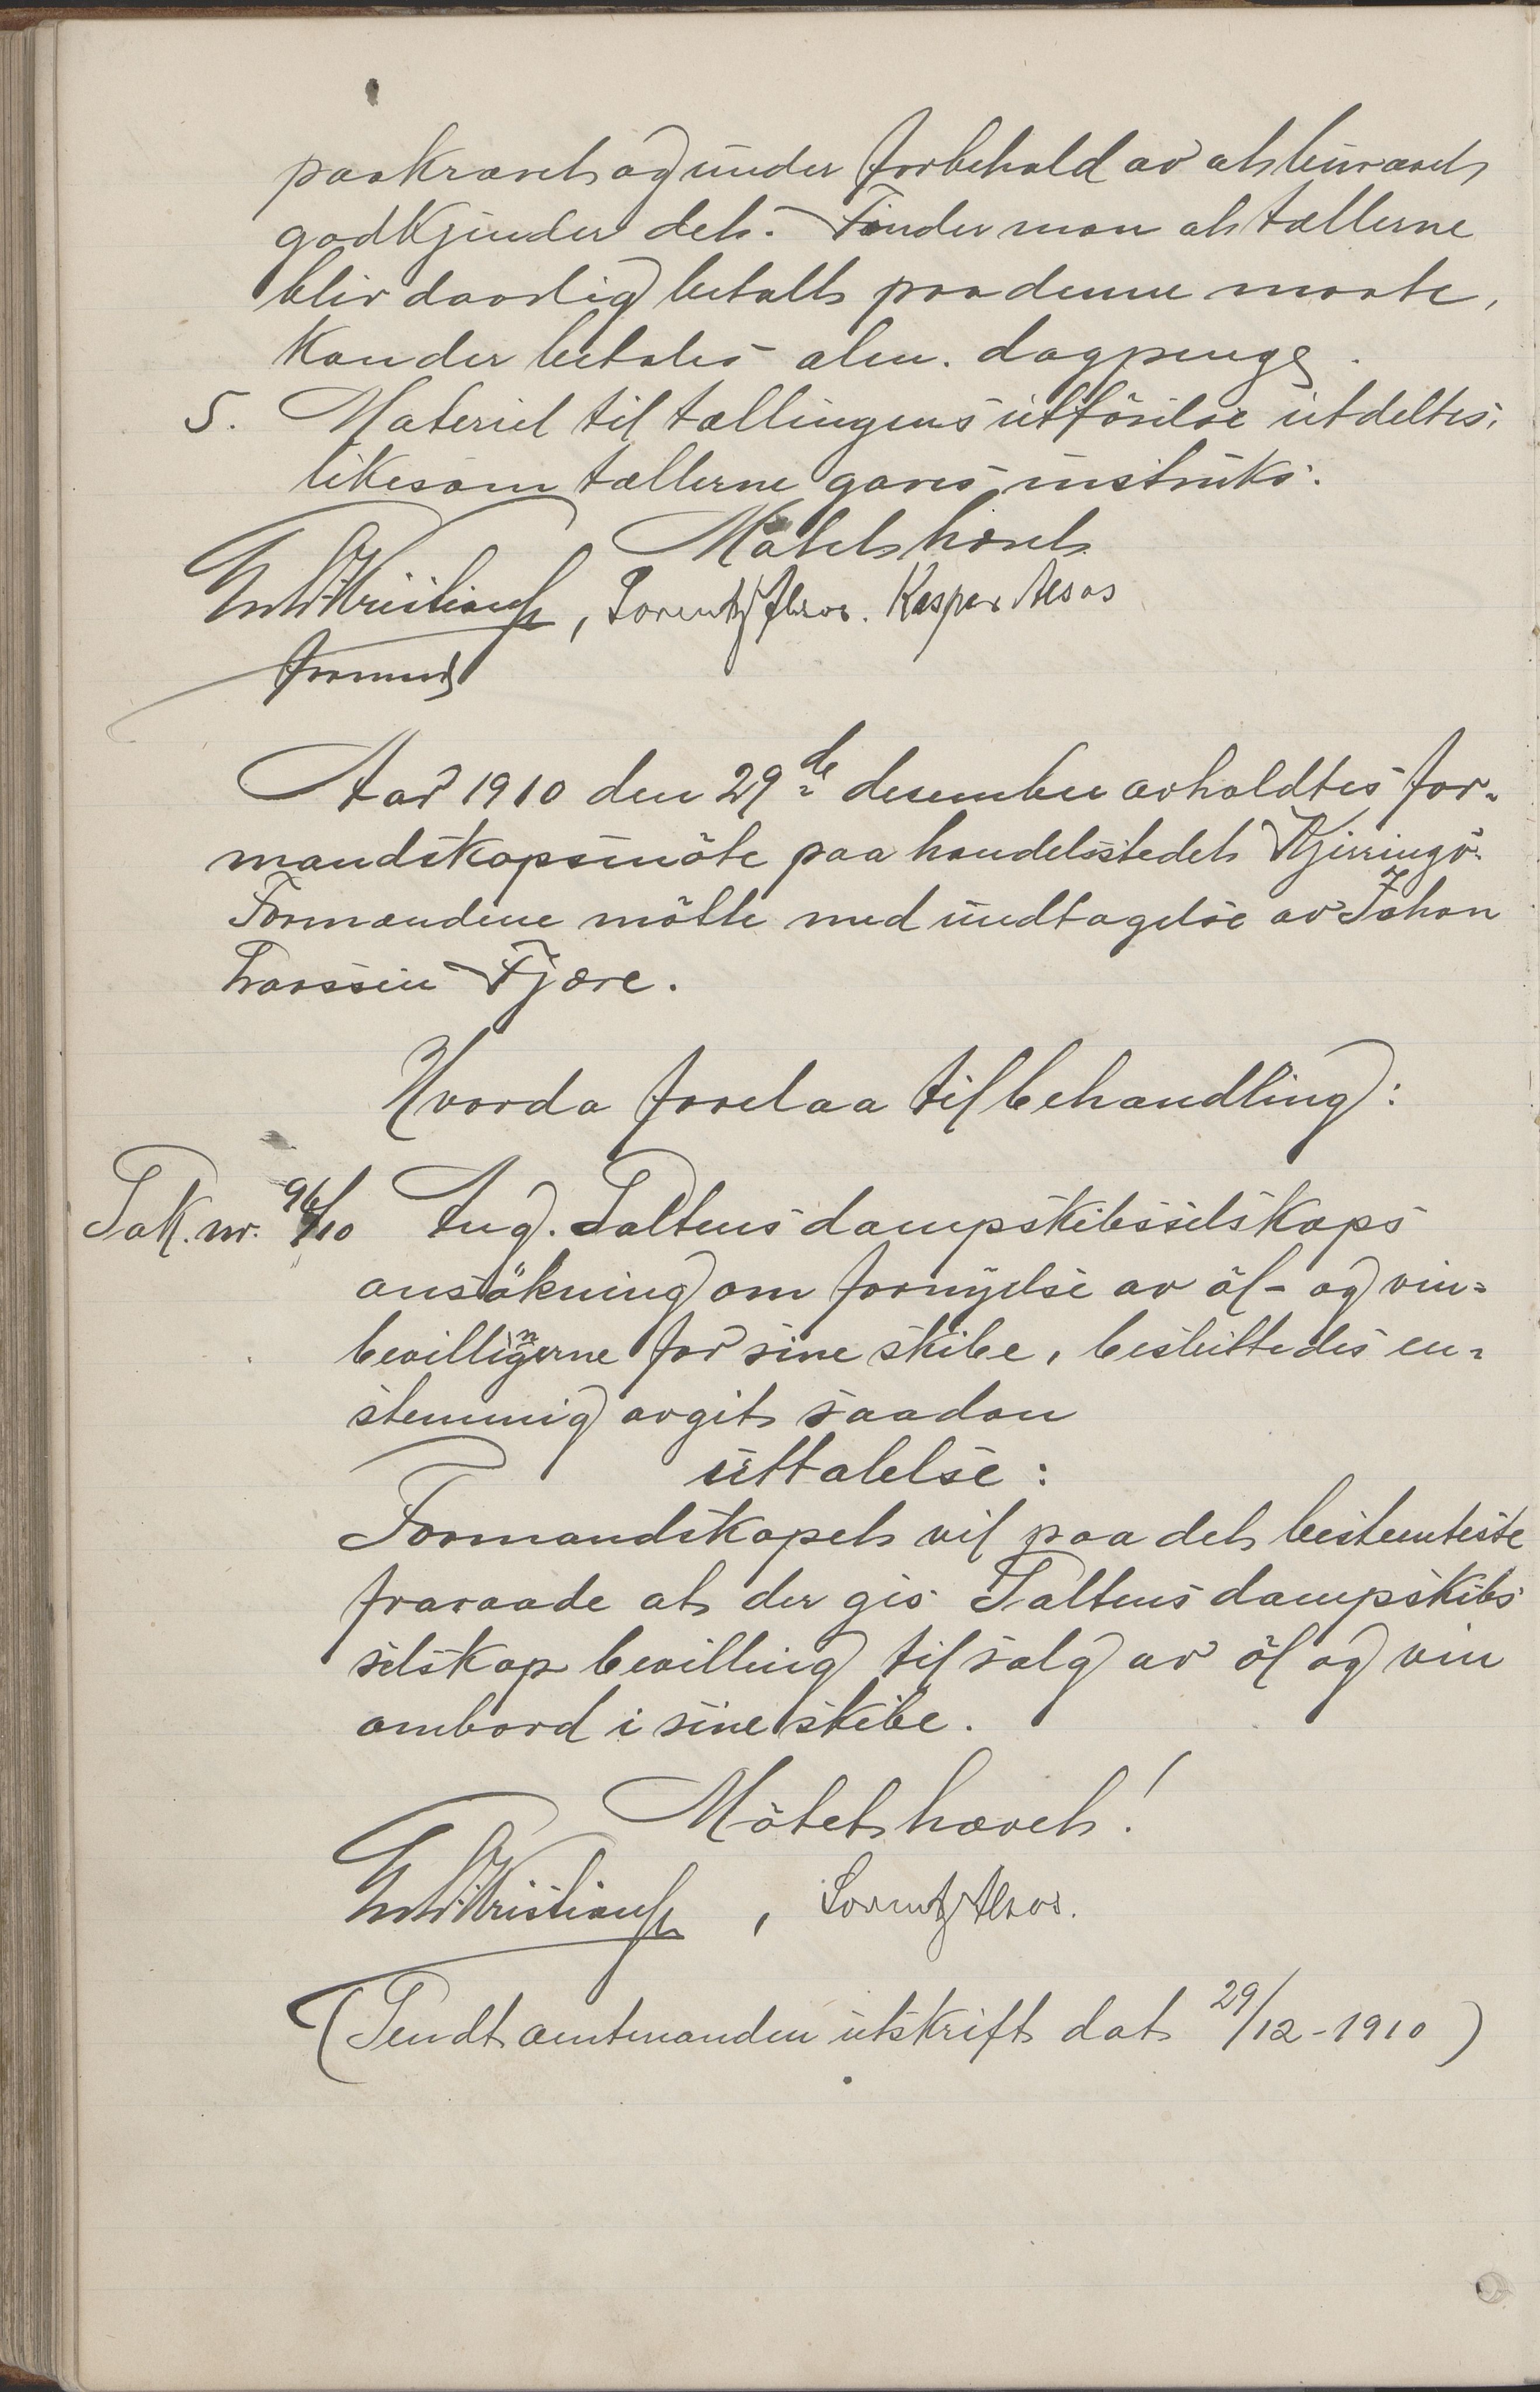 paakrævet og under forbehold av at byraaet
godkjender det. Finder man at tællerne
blir daarlig betalt paa denne maate,
kan der betales alm. dagpenge.
5. Materiel til tællingens utførelse utdeltes,
likesom tællerne gaves instruks.
Møtet hævet
Kristiansen, Lorentz Alsos. Kasper Alsos
formand
Aar 1910 den 29de desember avholdtes for-
mandskapsmøte paa handelsstedet Kjerringø.
Formændene møtte med undtagelse av Johan
Larssen Fjære.
Hvorda forelaa til behandling:
Sak. nr. 96/10 Ang. Saltens dampskibsselskaps
ansøkning om fornyelse av øl- og vin-
bevillingerne for sine skibe, besluttedes en-
stemmig avgit saadan
uttalelse:
Formandskapet vil paa det bestemteste
fraraade at der gis Saltens dampskibs
selskap bevilling til salg av øl og vin
ombord i sine skibe.
Møtet hævet!
Kristiansen, Lorentz Alsos.
(Sendt amtmanden utskrift dat 29/12-1910)